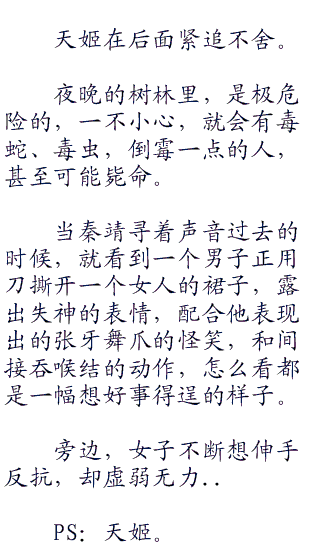 天姬在后面紧追不舍。
夜晚的树林里，是极危
险的，一不小心，就会有毒
蛇、毒虫，倒霉一点的人，
甚至可能毙命。
当秦靖寻着声音过去的
时候，就看到一个男子正用
刀撕开一个女人的裙子，露
出失神的表情，配合他表现
出的张牙舞爪的怪笑，和间
接吞喉结的动作，怎么看都
是一幅想好事得逞的样子。
旁边，女子不断想伸手
反抗，却虚弱无力..
PS：天姬。